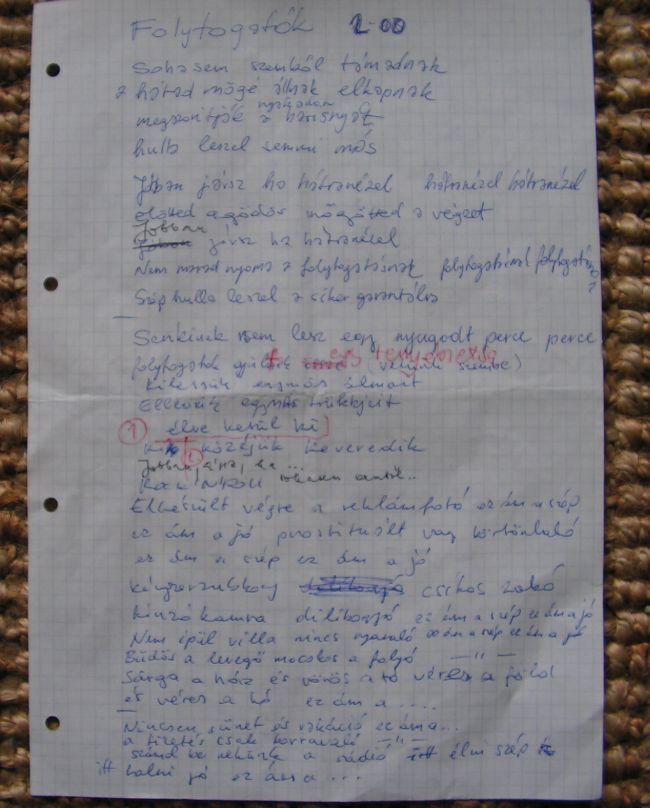 Folytogatók 2-00
Sohasem szemből támadnak
a hátad mögé állnak elkapnak
nyakadon
megszorítják a harisnyát
hulla leszel semmi más
Jóban jársz ha hátranézel hátranézel hátranézel
előtted a gödör mögötted a végzet
Jobban
jársz ha hátranézel
Nem marad nyoma a folytogatásnak folytogatásnak folytogatás
Szép hulla leszel a siker garantálva
Senkinek sem lesz egy nyugodt perce perce
folytogatók (velünk szembe)
Kilessük egymás álmait
Ellessük egymás trükkjeit
1 élve kerül ki
Ki közéjük keveredik
Jobban jársz, ha ...
Elkészült végre a reklámfotó ez ám a szép
ez ám a jó prostituált vagy börtönlakó
ez ám a szép ez ám a jó
kényszerzubbony csíkos zakó
kínzókamra diliborjó ez ám a szép ez ám a jó
Nem épül villa nincs nyaraló ez ám a szép ez ám a jó
Büdös a levegő mocskos a folyó —"—
Sárga a ház és vörös a tó véres a föld
és véres a hó ez ám a ....
Nincsen szünet és vakáció ez ám a...
a fizetés csak borravaló —"—
szólal be nekünk a rádió itt élni szép
itt halni jó ez ám a ...